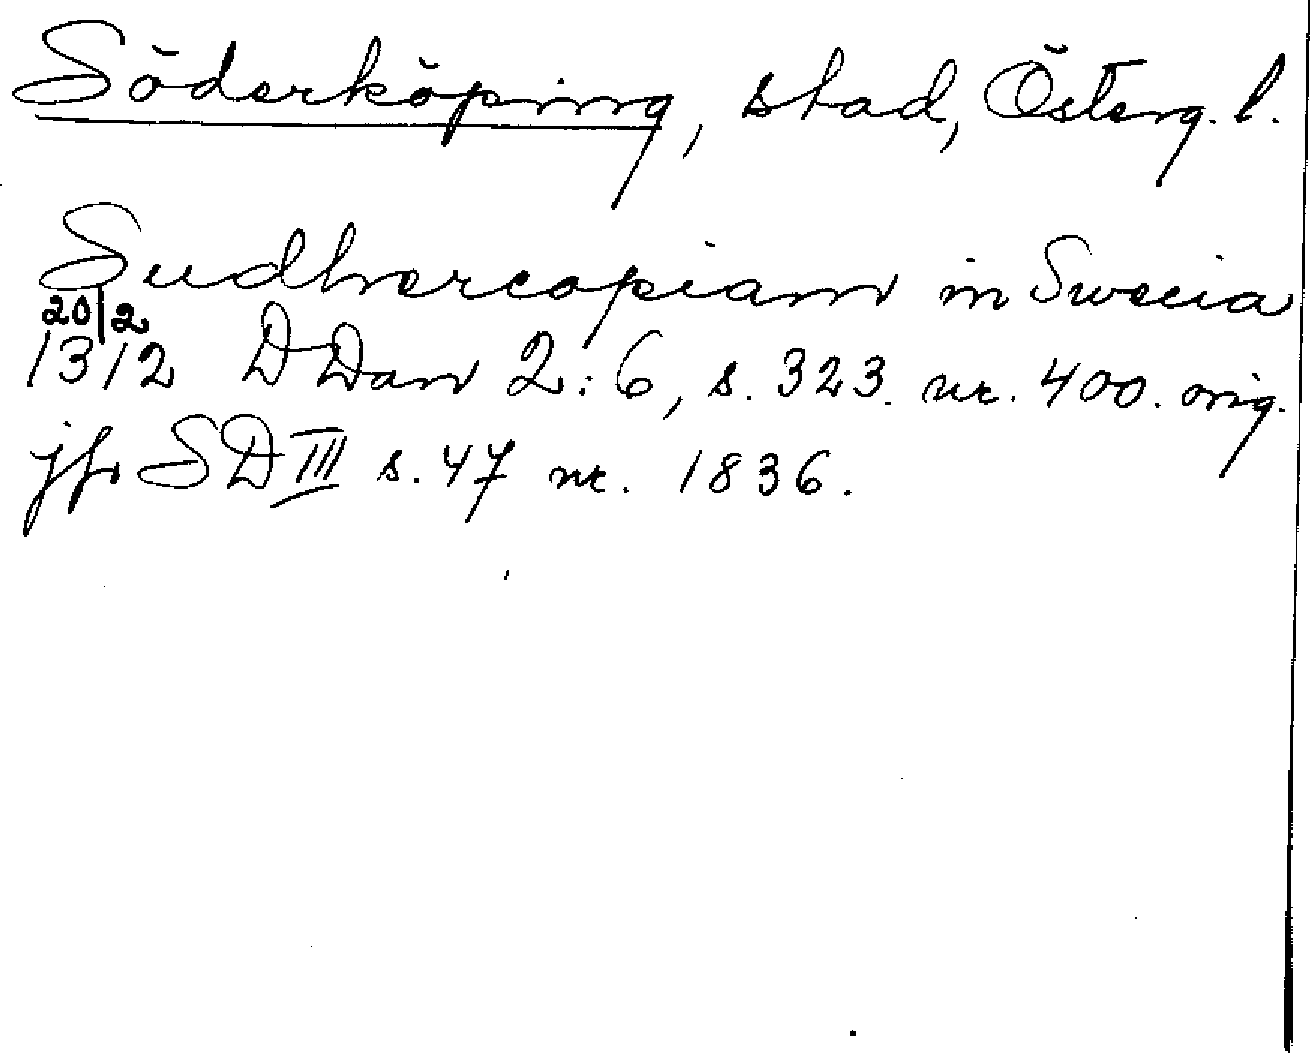 Söderköping, stad, Österg. l.
Sudhercopiam in Swecia
20/2
1312 DDan 2:6, s. 323. nr. 400. orig.
jfr SD III s. 47 nr. 1836.